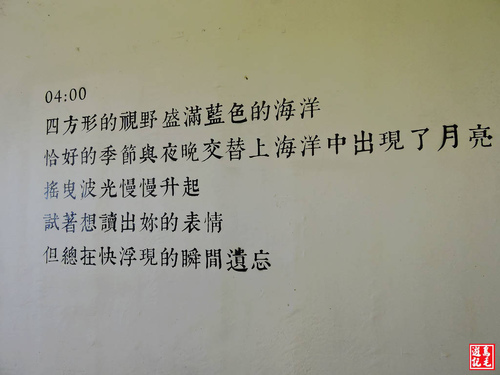 04:00
四方形的視野盛滿藍色的海洋
恰好的季節與夜晚交替上海洋中出現了月亮
搖曳波光慢慢升起
試著想讀出妳的表情
但總在快浮現的瞬間遺忘